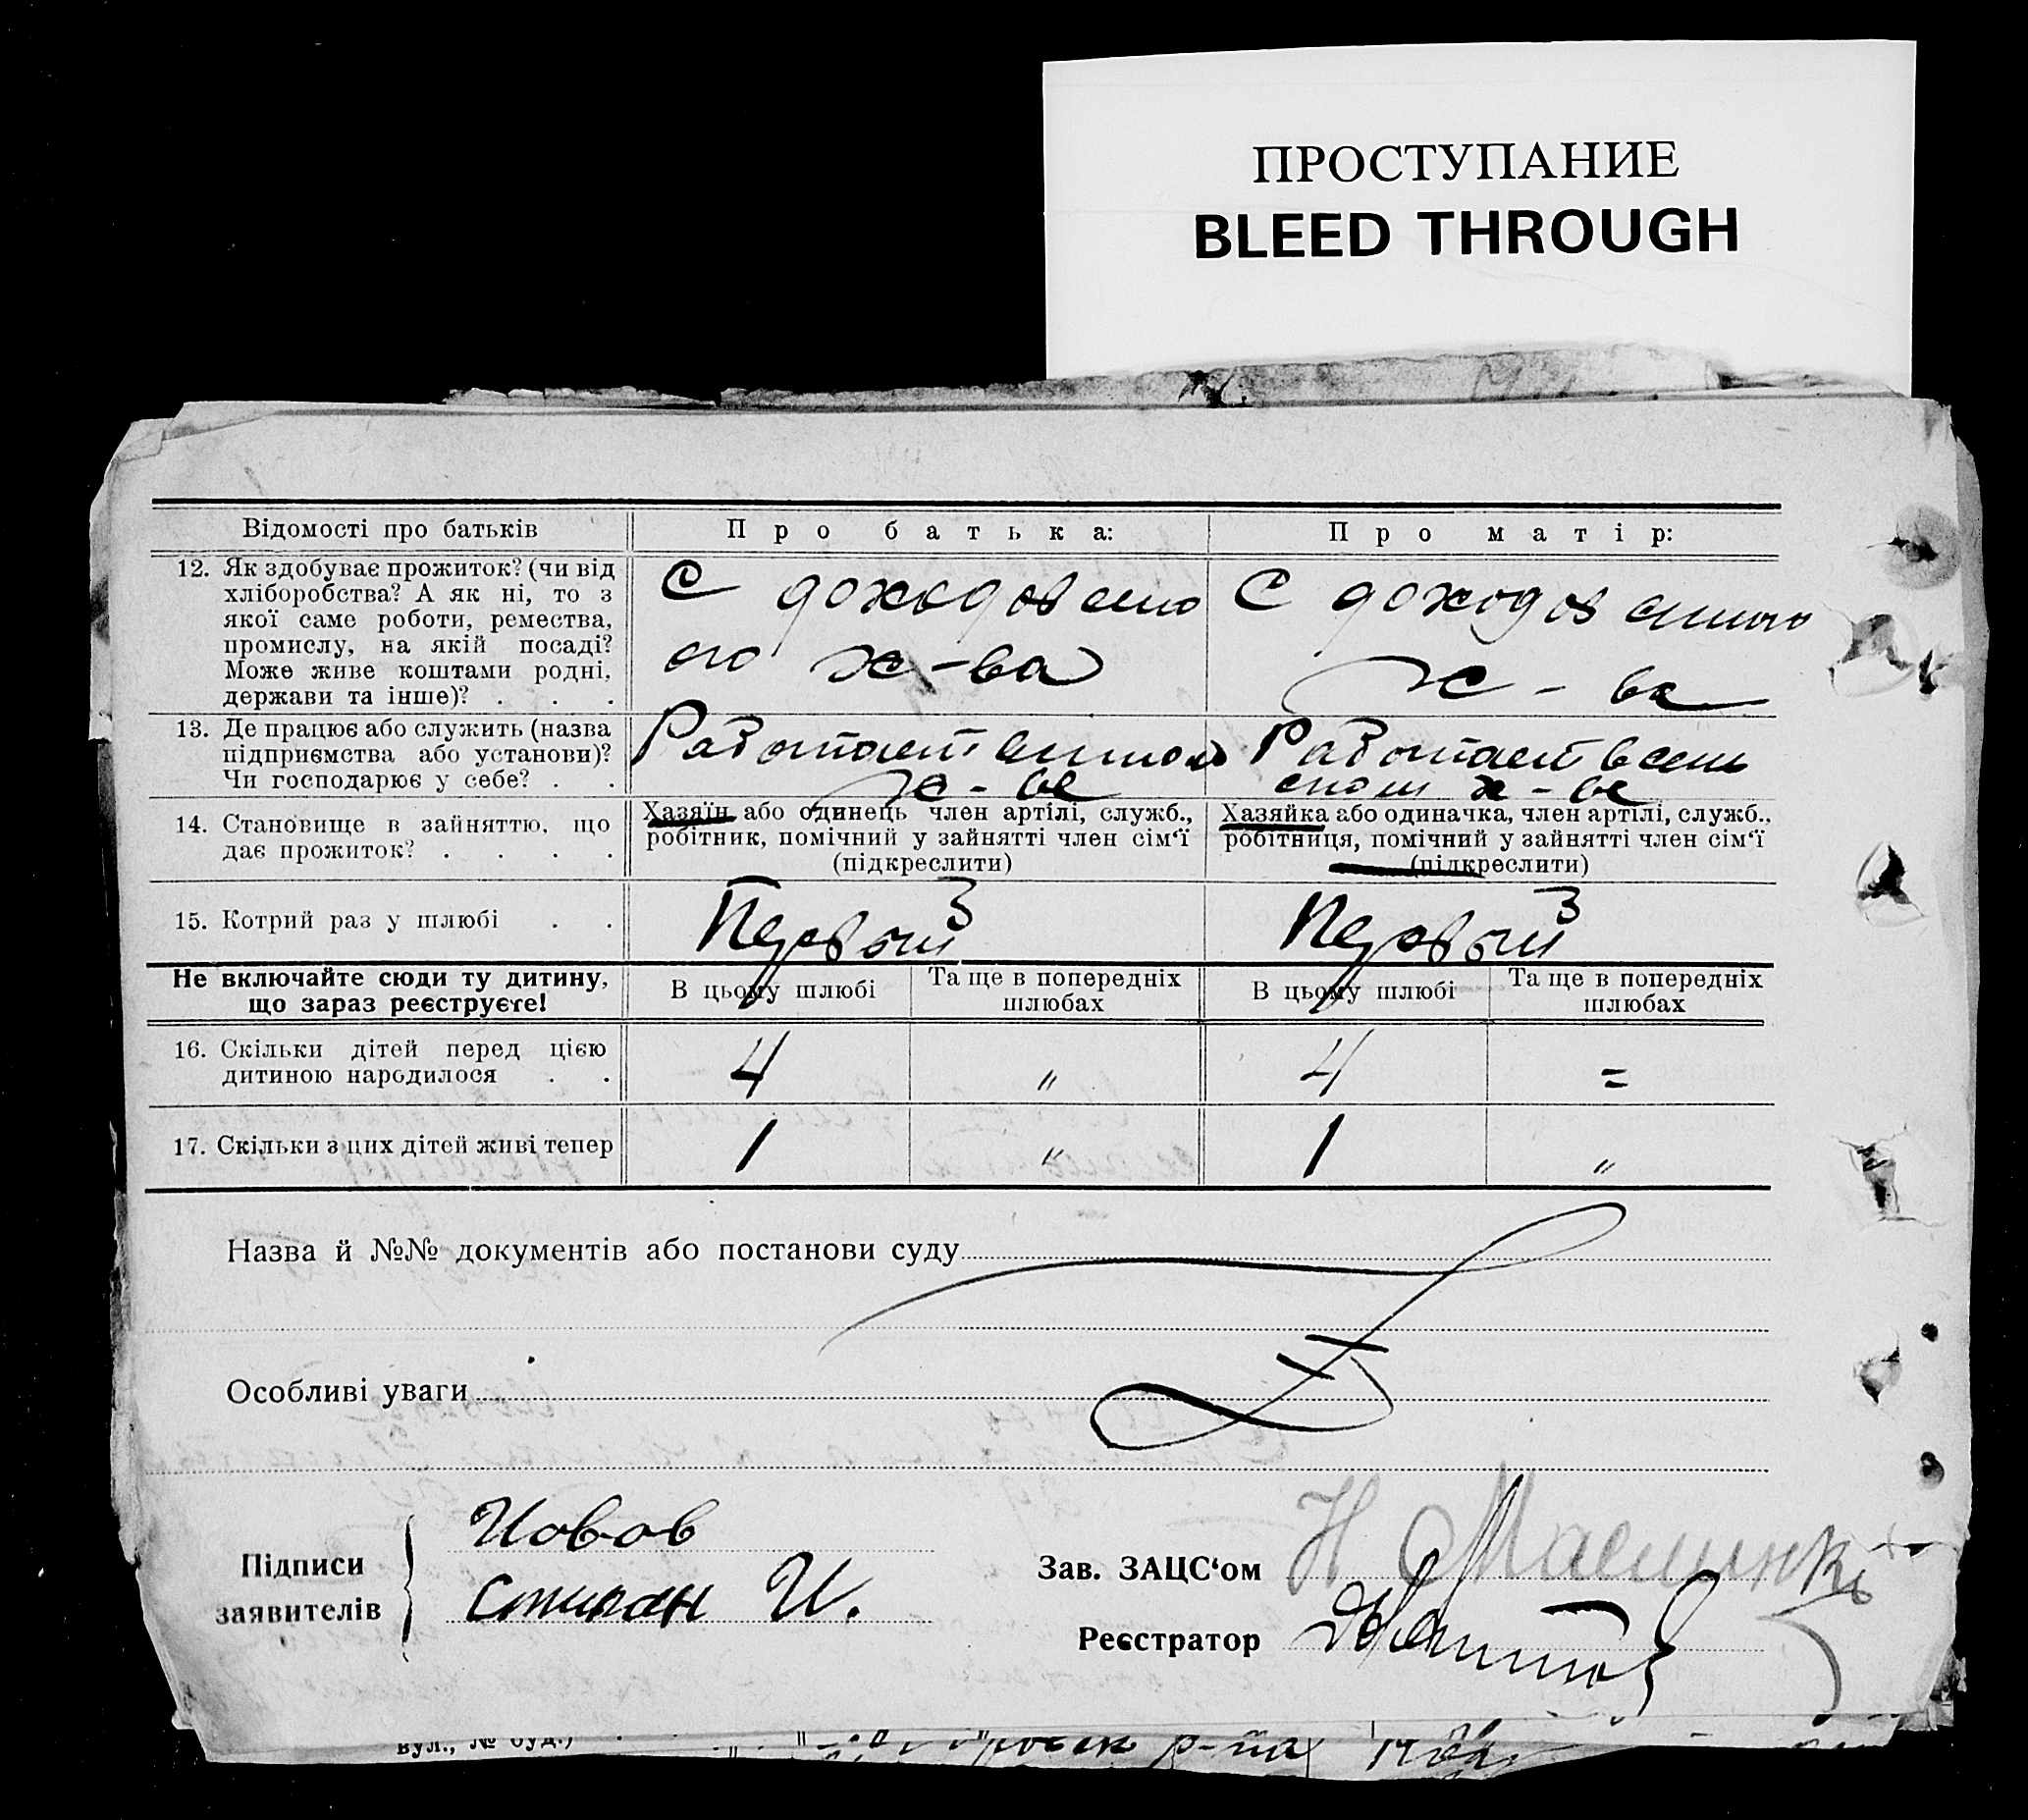 ПРОСТУПАНИЕ
BLEED THROUGH
Відомості про батьків
Про батька:
Про матір:
12. Як здобуває прожиток? (чи від
хліборобства? А як ні, то з
якої саме роботи, ремества,
промислу, на якій посаді?
Може живе коштами родні,
держави та інше)? . . .
С доходов
х-ва
С доходов
х-ва
13. Де працює або служить (назва
підприємства або установи)?
Чи господарює у себе? . .
Работает
х-ве
Работает в сель
ском х-ве
14. Становище в зайняттю, що
дає прожиток? . . . .
Хазяїн або одинець член артілі, служб.,
робітник, помічний у зайнятті член сім‘ї
(підкреслити)
Хазяйка або одиначка, член артілі, служб.,
робітниця, помічний у зайнятті член сім‘ї
(підкреслити)
15. Котрий раз у шлюбі . .
Первый 3
Первый 3
Не включайте сюди ту дитину,
що зараз реєструєте!
В цьому шлюбі
Та ще в попередніх
шлюбах
В цьому шлюбі
Та ще в попередніх
шлюбах
16. Скільки дітей перед цією
дитиною народилося . .
4
"
4
=
17. Скільки з цих дітей живі тепер
1
"
1
"
Назва й №№ документів або постанови суду
Особливі уваги
Підписи
заявителів
Иовов
Степан И.
Зав. ЗАЦС‘ом
Реєстратор
вул., № буд.)
р-на